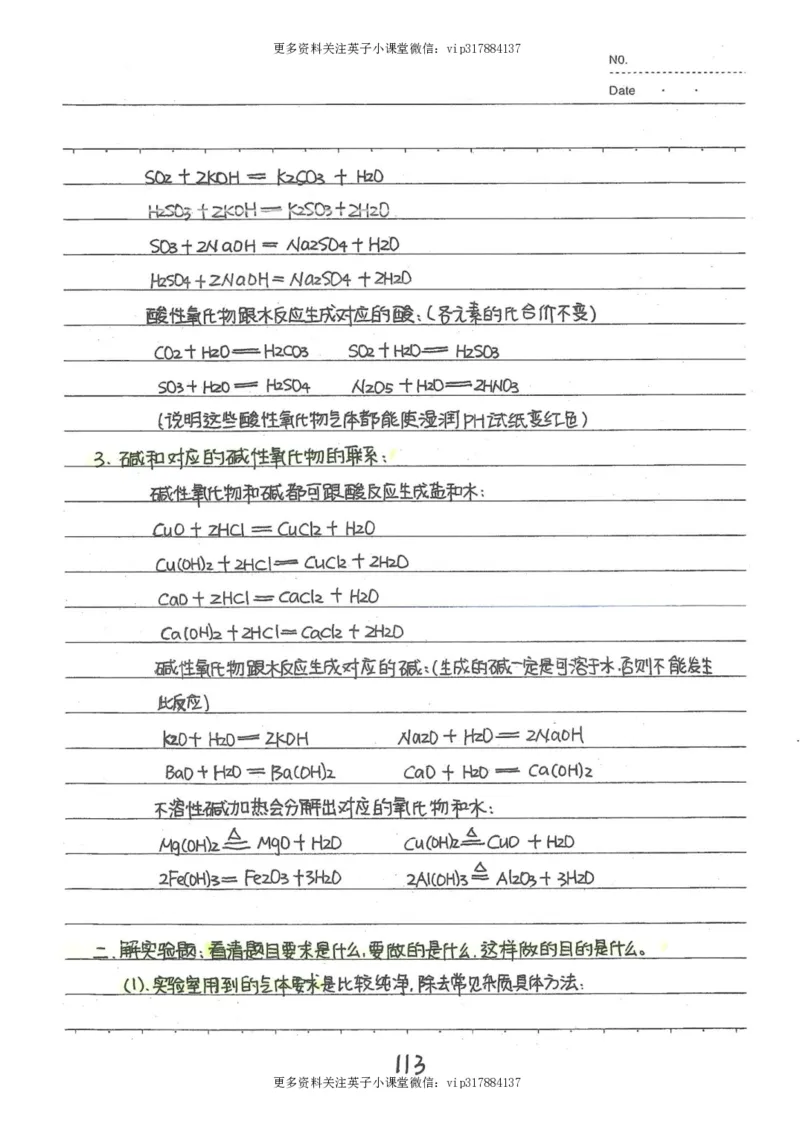 更多资料关注英子小课堂微信：vip317884137
NO.
Date · ·
SO2 + 2KOH = K2CO3 + H2O
H2SO3 + 2KOH = K2SO3 + 2H2O
SO3 + 2NaOH = Na2SO4 + H2O
H2SO4 + 2NaOH = Na2SO4 + 2H2O
酸性氧化物跟水反应生成对应的酸：(各元素的化合价不变)
CO2 + H2O = H2CO3 SO2 + H2O = H2SO3
SO3 + H2O = H2SO4 N2O5 + H2O = 2HNO3
(说明这些酸性氧化物气体都能使湿润PH试纸变红色)
3. 碱和对应的碱性氧化物的联系：
碱性氧化物和碱都可跟酸反应生成盐和水：
CuO + 2HCl = CuCl2 + H2O
Cu(OH)2 + 2HCl = CuCl2 + 2H2O
CaO + 2HCl = CaCl2 + H2O
Ca(OH)2 + 2HCl = CaCl2 + 2H2O
碱性氧化物跟水反应生成对应的碱：(生成的碱一定是可溶于水,否则不能发生
此反应)
K2O + H2O = 2KOH Na2O + H2O = 2NaOH
BaO + H2O = Ba(OH)2 CaO + H2O = Ca(OH)2
不溶性碱加热会分解出对应的氧化物和水：
Mg(OH)2 ≜ MgO + H2O Cu(OH)2 ≜ CuO + H2O
2Fe(OH)3 = Fe2O3 + 3H2O 2Al(OH)3 ≜ Al2O3 + 3H2O
二.解实验题：看清题目要求是什么,要做的是什么,这样做的目的是什么。
(1).实验室用到的气体要求是比较纯净,除去常见杂质具体方法：
113
更多资料关注英子小课堂微信：vip317884137